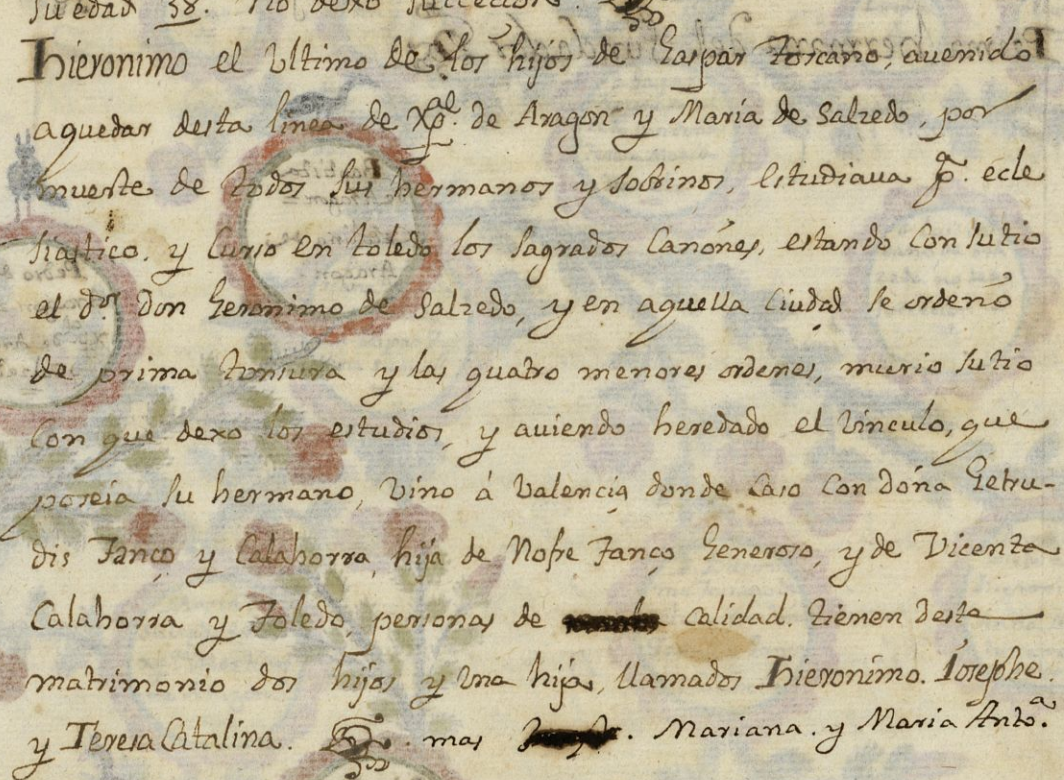 su edad 38. no dexo successor.
Hieronimo el Ultimo de los hijos de Gaspar Toscano, auenido
a quedar desta linea de Xpāl. de Aragon y Maria de Salzedo, por
muerte de todos sus hermanos y sobrinos, estudiaua pª. ecle
siastico, y Curso en toledo los sagrados Canones, estando Con su tio
el dor. Don Geronimo de Salzedo, y en aquella Ciudad se ordeno
de prima tonsura y las quatro menores ordenes, murio su tio
Con que dexo los estudios, y auiendo heredado el Vinculo, que
poseia su hermano, Vino á Valencia donde Caso Con doña Getru-
dis Tanço y Calahorra, hija de Nofre Tanço Generoso, y de Vicenta
Calahorra y Toledo, personas de calidad. tienen deste
matrimonio dos hijos y Una hija, llamados Hieronimo. Iosephe.
y Teresa Catalina. mas . Mariana. y Maria Antoª.